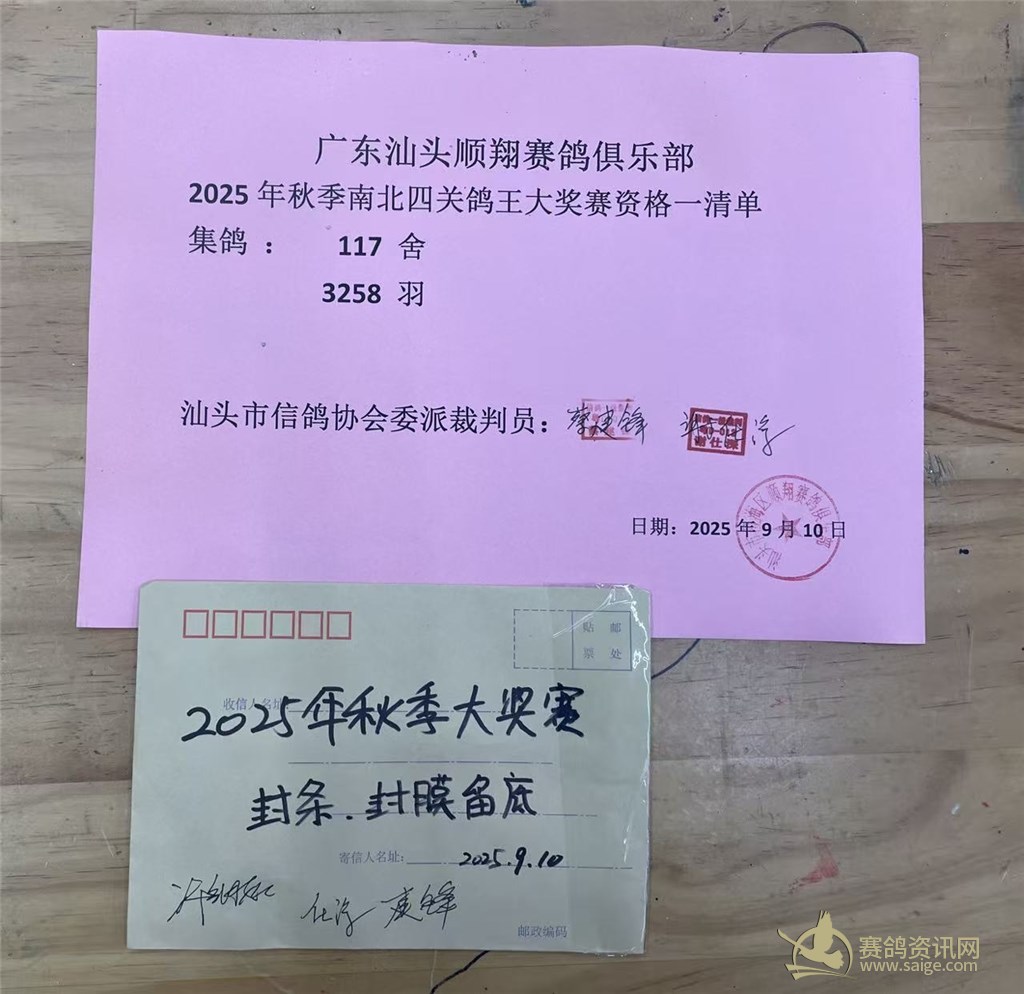 广东汕头顺翔赛鸽俱乐部
2025 年秋季南北四关鸽王大奖赛资格一清单
集鸽 ： 117 舍
3258 羽
汕头市信鸽协会委派裁判员：蔡建锋
日期：2025 年 9 月 10 日
贴 邮
票 处
收信人名址:
2025年秋季大奖赛
封条.封膜留底
寄信人名址:
2025.9.10
邮政编码
赛鸽资讯网
www.saige.com